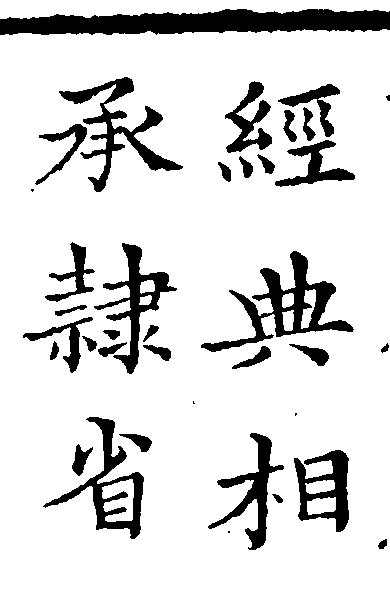 經典相
承隸省